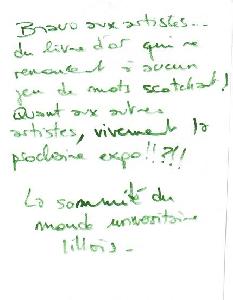 Bravo aux artistes...
du livre d'or qui ne
renoncent à aucun
jeu de mots scotchant!
Quant aux autres
artistes, vivement la
prochaine expo!!?!!
La sommité du
monde universitaire
lillois-